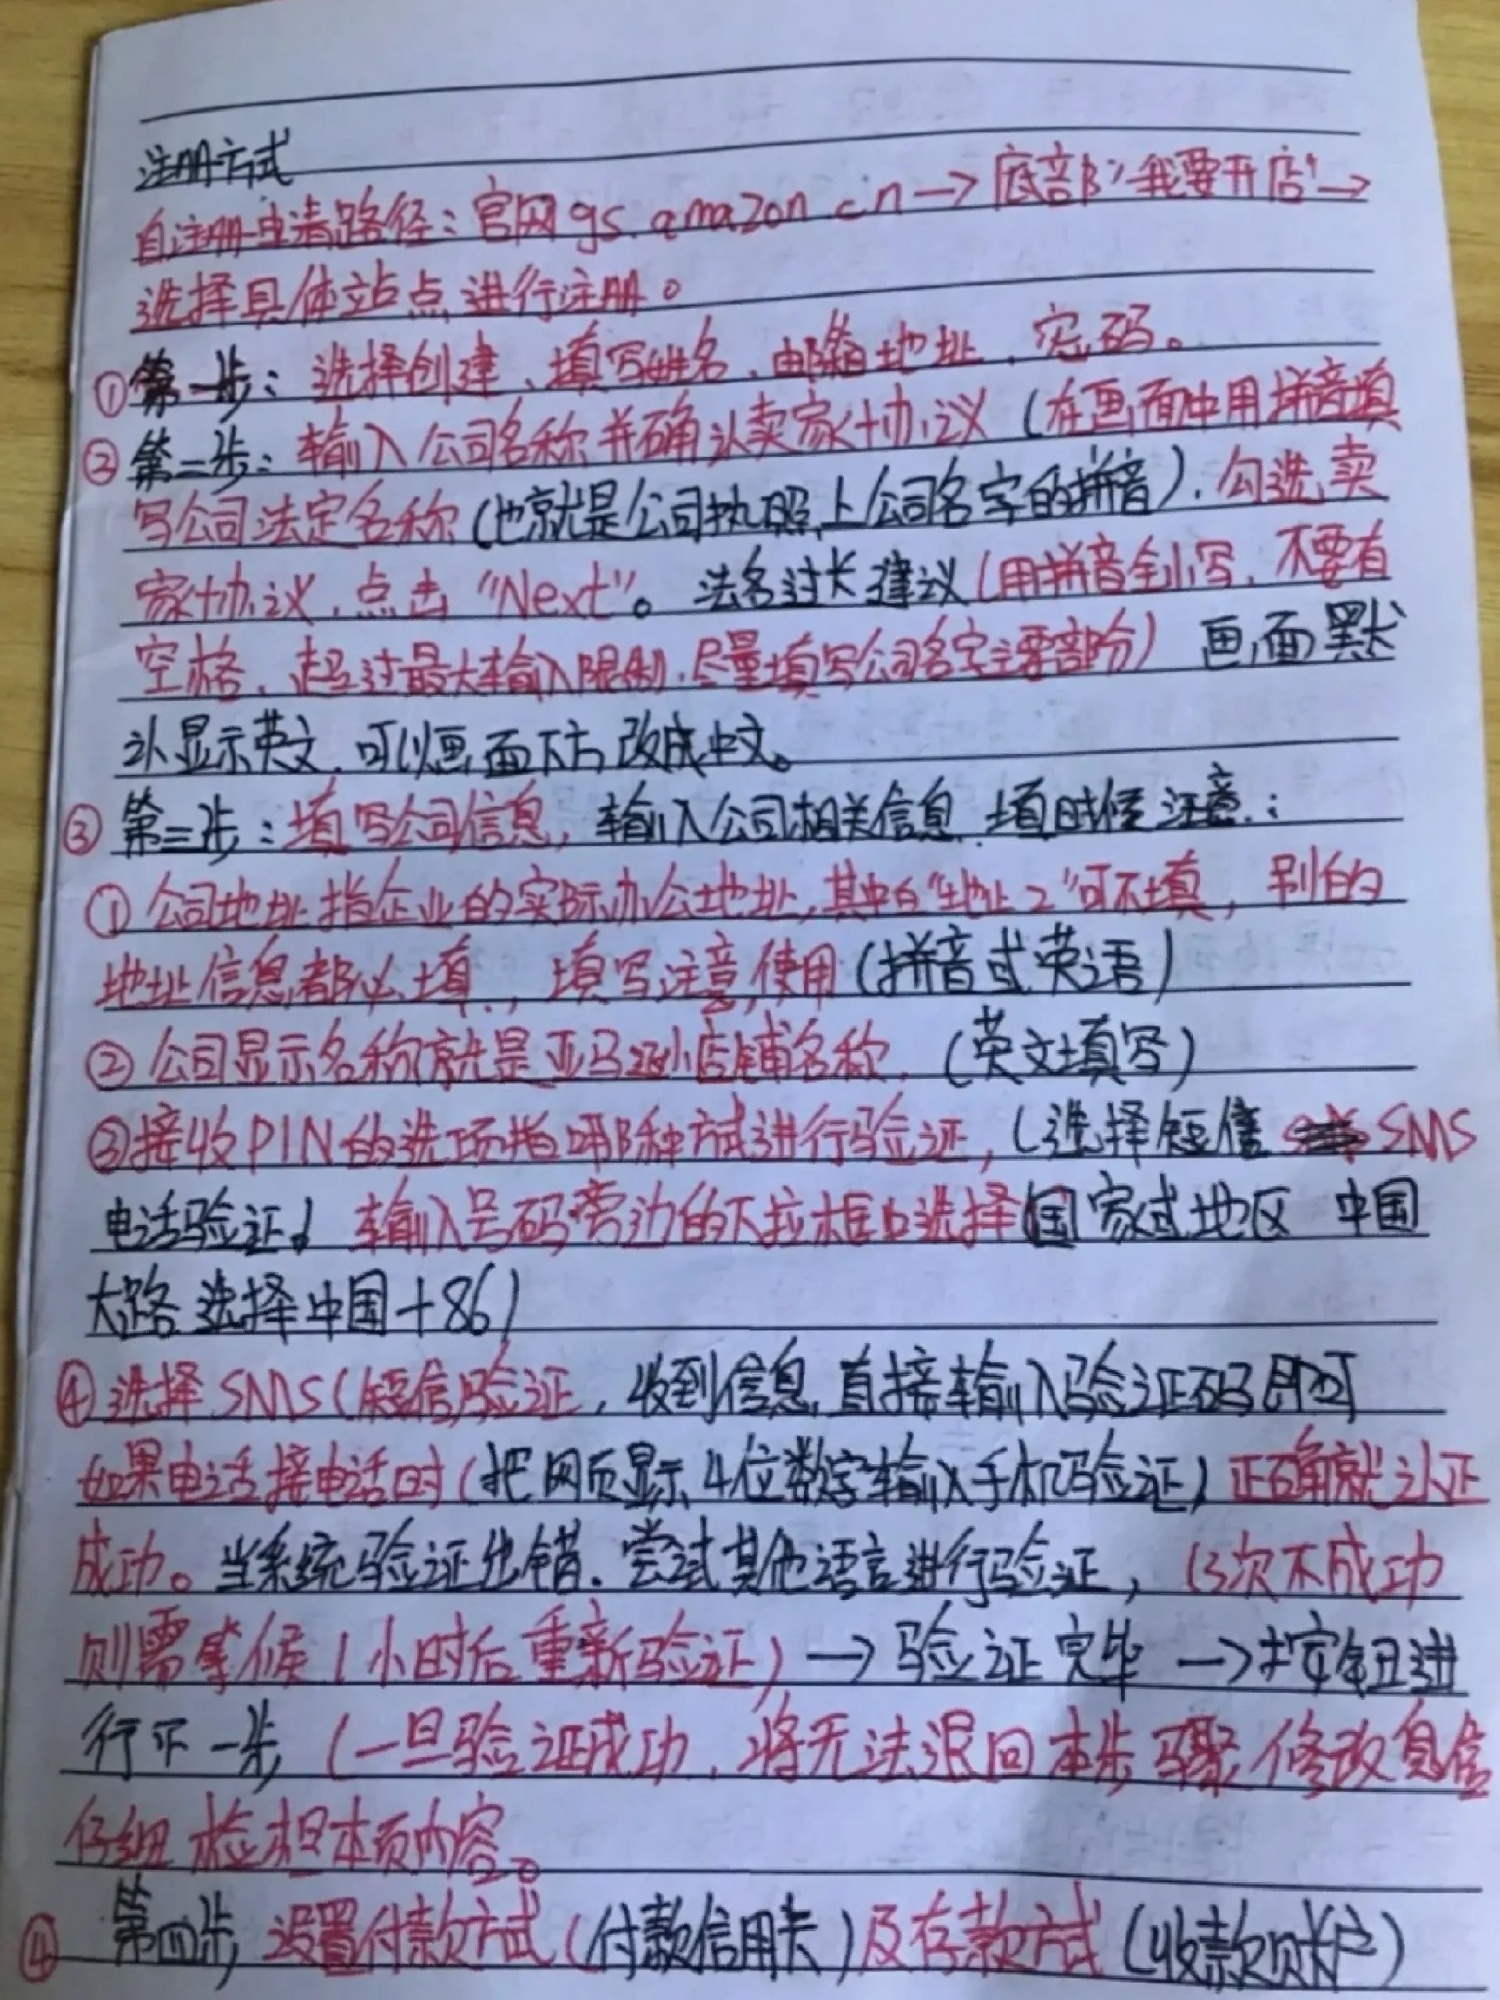 注册方式
自注册申请路径：官网gs.amazon.cn→底部"我要开店"→
选择具体站点进行注册。
①第一步：选择创建、填写姓名、邮箱地址、密码。
②第二步：输入公司名称并确认卖家协议（在画面中用拼音填
写公司法定名称（也就是公司执照上公司名字的拼音）.勾选卖
家协议、点击"Next"。法名过长建议（用拼音全小写、不要有
空格、超过最大输入限制.尽量填写公司名字主要部分）画面默
认显示英文.可以画面下方改成中文。
③第三步：填写公司信息，输入公司相关信息.填时候注意：
①公司地址指企业的实际办公地址,其中的"地址2"可不填，别的
地址信息都必填，填写注意使用（拼音或英语）
②公司显示名称就是亚马逊小店铺名称.（英文填写）
③接收PIN的选项指哪种方式进行验证，（选择短信 SMS
电话验证。输入号码旁边的下拉框中选择国家或地区 中国
大路 选择中国+86）
④选择SMS（短信验证，收到信息直接输入验证码即可
如果电话接电话时（把网页显示4位数字输入手机验证）正确就认证
成功。当系统验证出错.尝试其他语言进行验证，（3次不成功
则需等候1小时后重新验证）→验证完毕→按钮进
行下一步（一旦验证成功，将无法退回本步骤修改息信
仔细检担本页内容。
④第四步 设置付款方式（付款信用卡）及存款方式（收款账户）